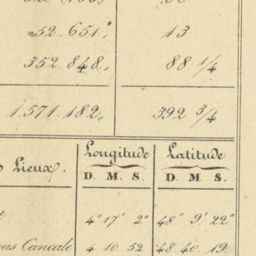 52.651. 13
352.848. 88 1/4
1.571.182. 392 3/4
Longitude Latitude
Lieux. D. M. S. D. M. S.
4° 17' 2" 48° 9' 22"
Cancale 4 10 52 48 40 19